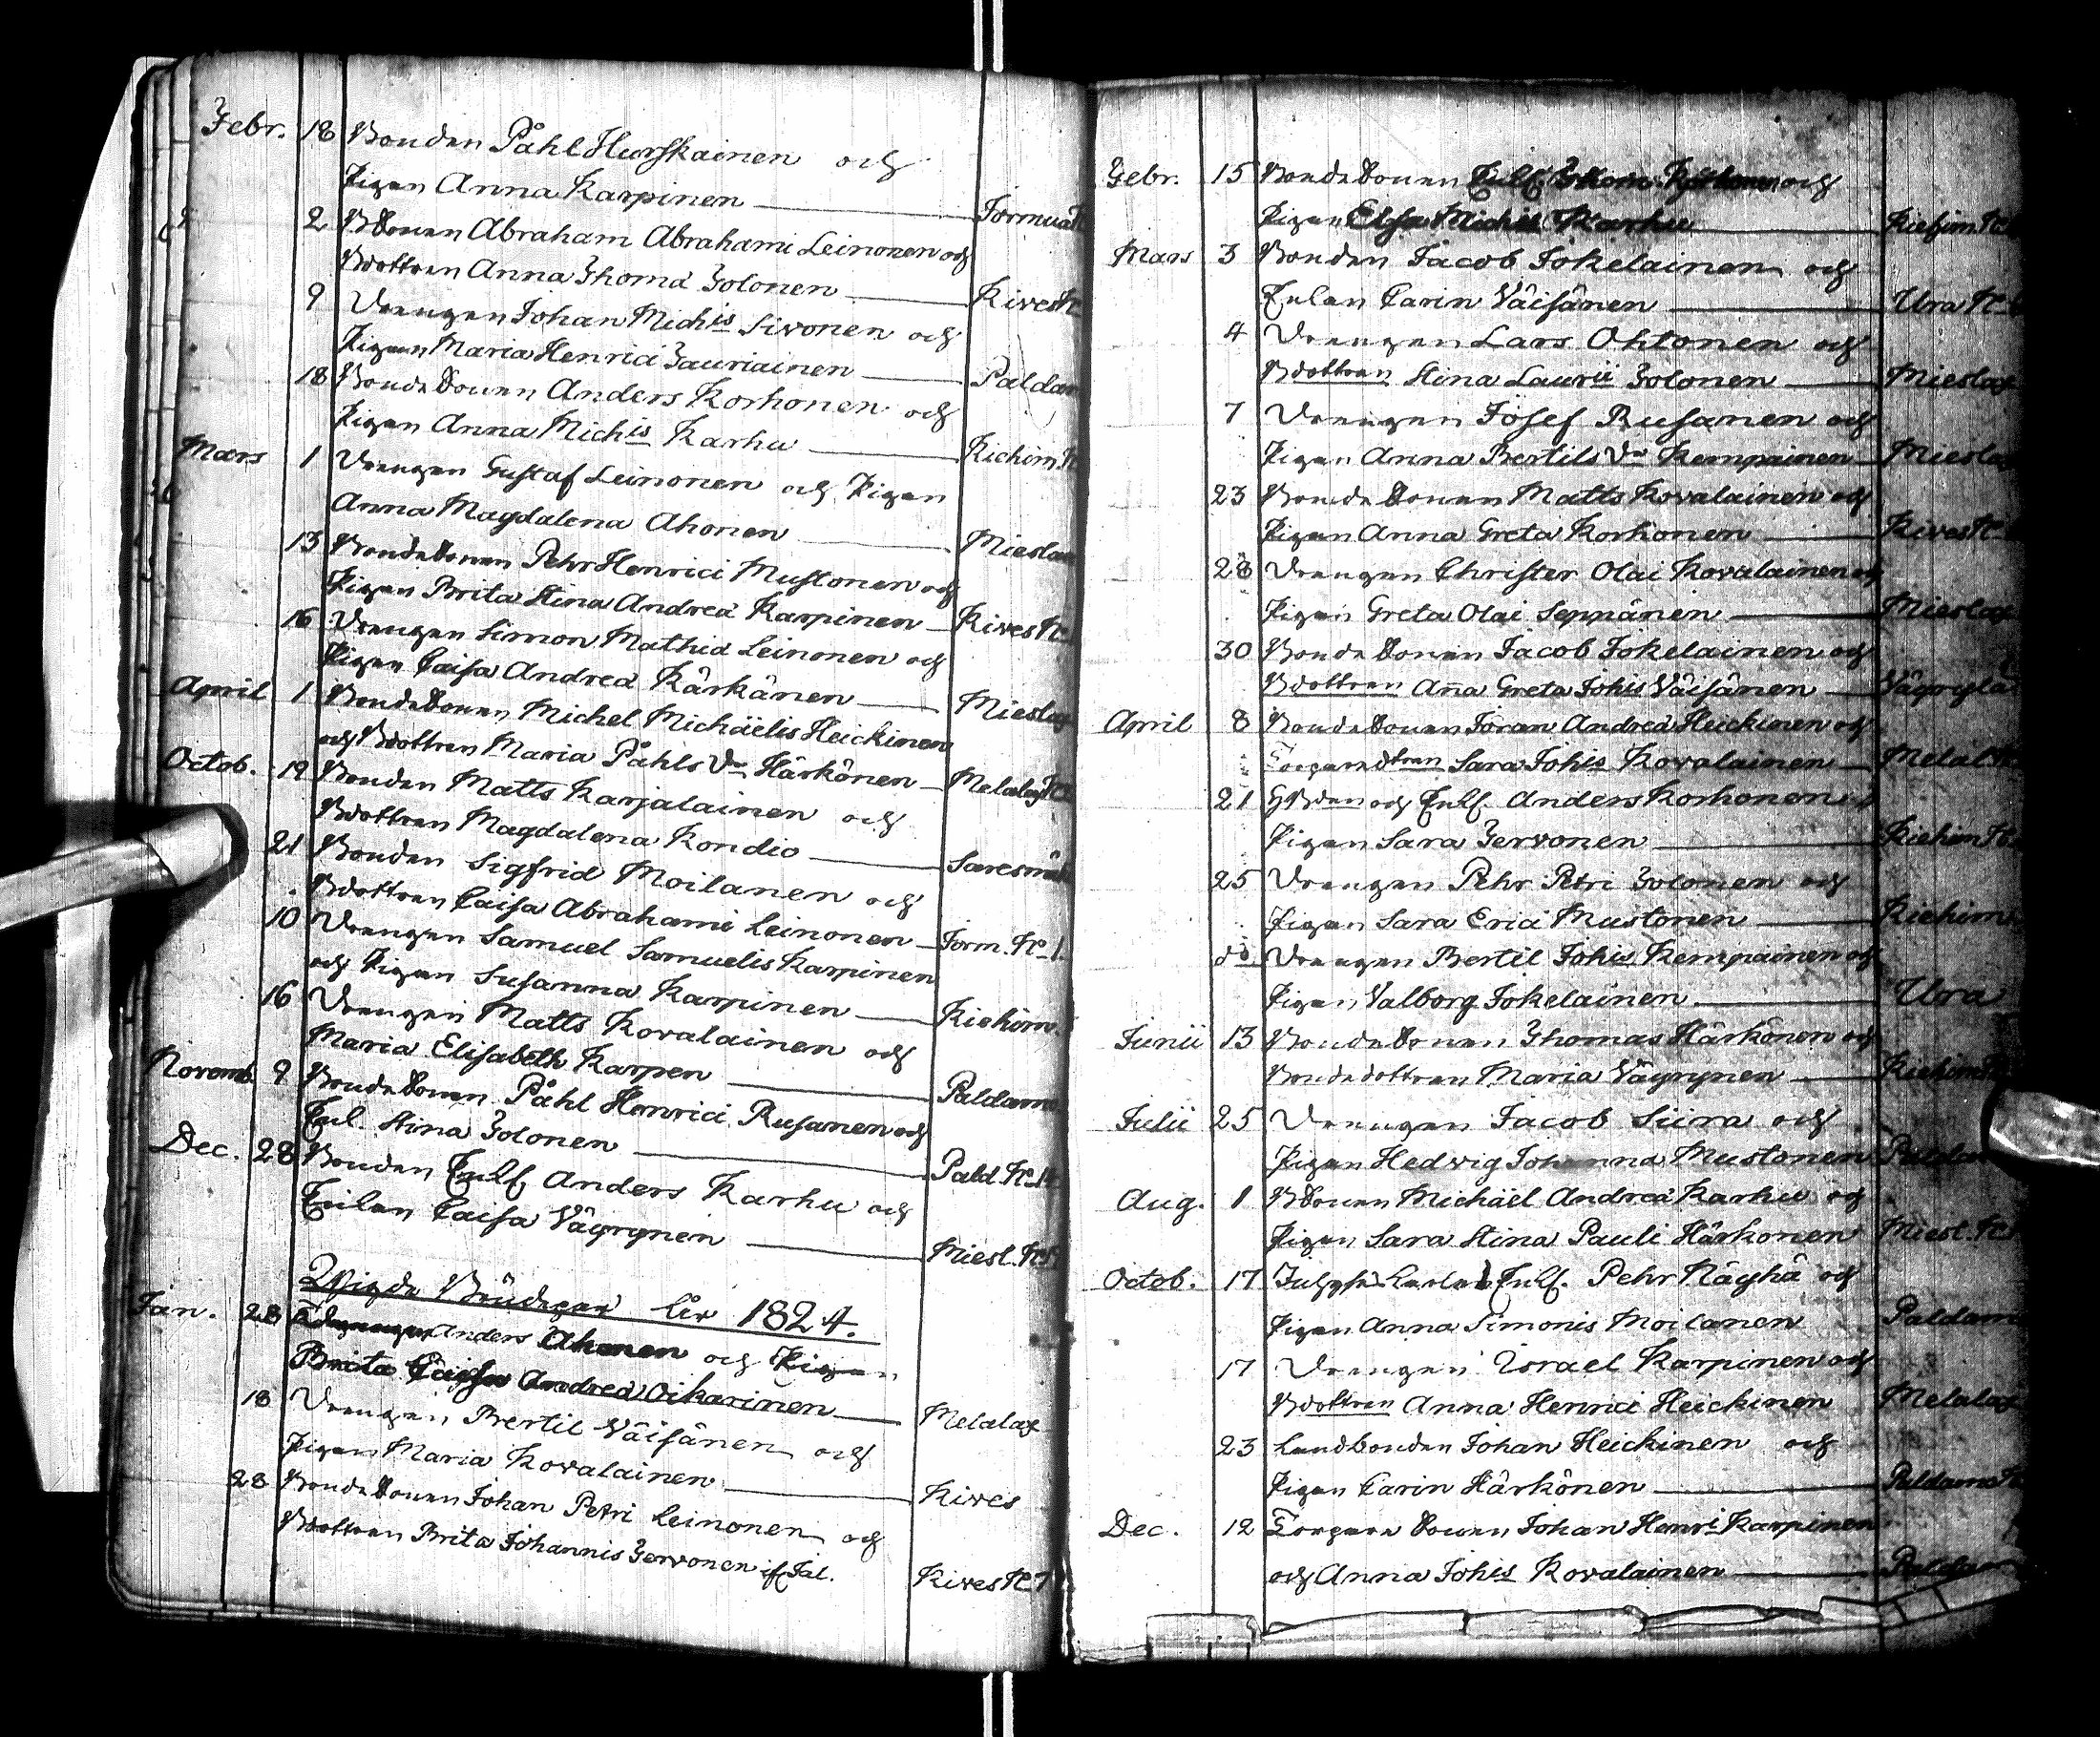 Febr. 18 Bonden Påhl Hurskainen och
Pigan Anna Karpinen — Jormua N
2 BSonen Abraham Abrahami Leinonen och
Bdottren Anna Thomæ Tolonen — Kives N
9 Drengen Johan Michis Sivonen och
Pigan Maria Henrici Tauriainen — Paldam
18 BondeSonen Anders Korhonen och
Pigan Anna Michis Karhu — Kiehim. N
Mars 1 Drengen Gustaf Leinonen och Pigan
Anna Magdalena Ahonen — Mieslax
13 BondeSonen Pehr Henrici Mustonen och
Pigan Brita Stina Andreæ Karpinen — Kives N
16 Drengen Simon Mathiæ Leinonen och
Pigan Caisa Andreæ Kärkänen — Mieslax
April 1 BondeSonen Michel Michäelis Heickinen
och Bdottren Maria Påhls Dr Härkönen — Melalax N
Octob. 19 Bonden Matts Karjalainen och
Bdottren Magdalena Kondio — Saresmäk
21 Bonden Sigfrid Moilanen och
Bdottren Caisa Abrahami Leinonen — Jorm. No 1.
10 Drengen Samuel Samuelis Karpinen
och Pigan Susanna Karpinen — Kiehim.
16 Drengen Matts Kovalainen och
Maria Elisabeth Karpen — Paldamo
Novemb. 9 BondeSonen Påhl Henrici Rusanen och
Enk. Stina Tolonen — Pald. No 14
Dec. 28 Bonden Enkl. Anders Karhu och
Enkan Caisa Väyrynen — Miesl. No
Vigde Brudepar År 1824.
Jan. 28 Anders Ahonen och Pigan
Brita Caisa Andreæ Oikarinen — Melalax
18 Drengen Bertil Väisänen och
Pigan Maria Kovalainen — Kives
28 BondeSonen Johan Petri Leinonen och
Bdottren Brita Johannis Tervonen — Kives No 7
Febr. 15 BondeSonen Enkl. Thom. Kyllönen och
Pigan Elsa Michis Karhu — Kiehim No
Mars 3 Bonden Jacob Jokelainen och
Enkan Carin Väisänen — Ura No
4 Drengen Lars Ohtonen och
Bdottren Stina Laurii Tolonen — Mieslax
7 Drengen Josef Rusanen och
Pigan Anna Bertils Dr Kempainen — Mieslax
23 BondeSonen Matts Kovalainen och
Pigan Anna Greta Korhonen — Kives No
28 Drengen Christer Olai Kovalainen och
Pigan Greta Olai Seppänen — Mieslax
30 BondeSonen Jacob Jokelainen och
Bdottren Aña Greta Johis Väisänen — Väyrylä
April 8 BondeSonen Jöran Andreæ Heickinen och
Torparedtren Sara Johis Kovalainen — Melal. N
21 GBden och Enkl. Anders Korhonen och
Pigan Sara Tervonen — Kiehim No
25 Drengen Pehr Petri Tolonen och
Pigan Sara Erici Mustonen — Kiehim
do Drengen Bertil Johis Kempainen och
Pigan Valborg Jokelainen — Ura
Junii 13 BondeSonen Thomas Härkönen och
Bondedottren Maria Väyrynen — Kiehim N
Julii 25 Drengen Jacob Siira och
Pigan Hedvig Johanna Mustonen Paldam
Aug. 1 BSonen Michäel Andreæ Karhu och
Pigan Sara Stina Pauli Härkonen Miesl. No
Octob. 17 Enkl. Pehr Näyhä och
Pigan Anna Simonis Moilanen Paldam
17 Drengen Israel Karpinen och
Bdottren Anna Henrici Heickinen Melalax
23 Landbonden Johan Heickinen och
Pigan Carin Härkönen — Paldamo N
Dec. 12 Torpare Sonen Johan Henri Karpinen
och Anna Johis Kovalainen — Paldam